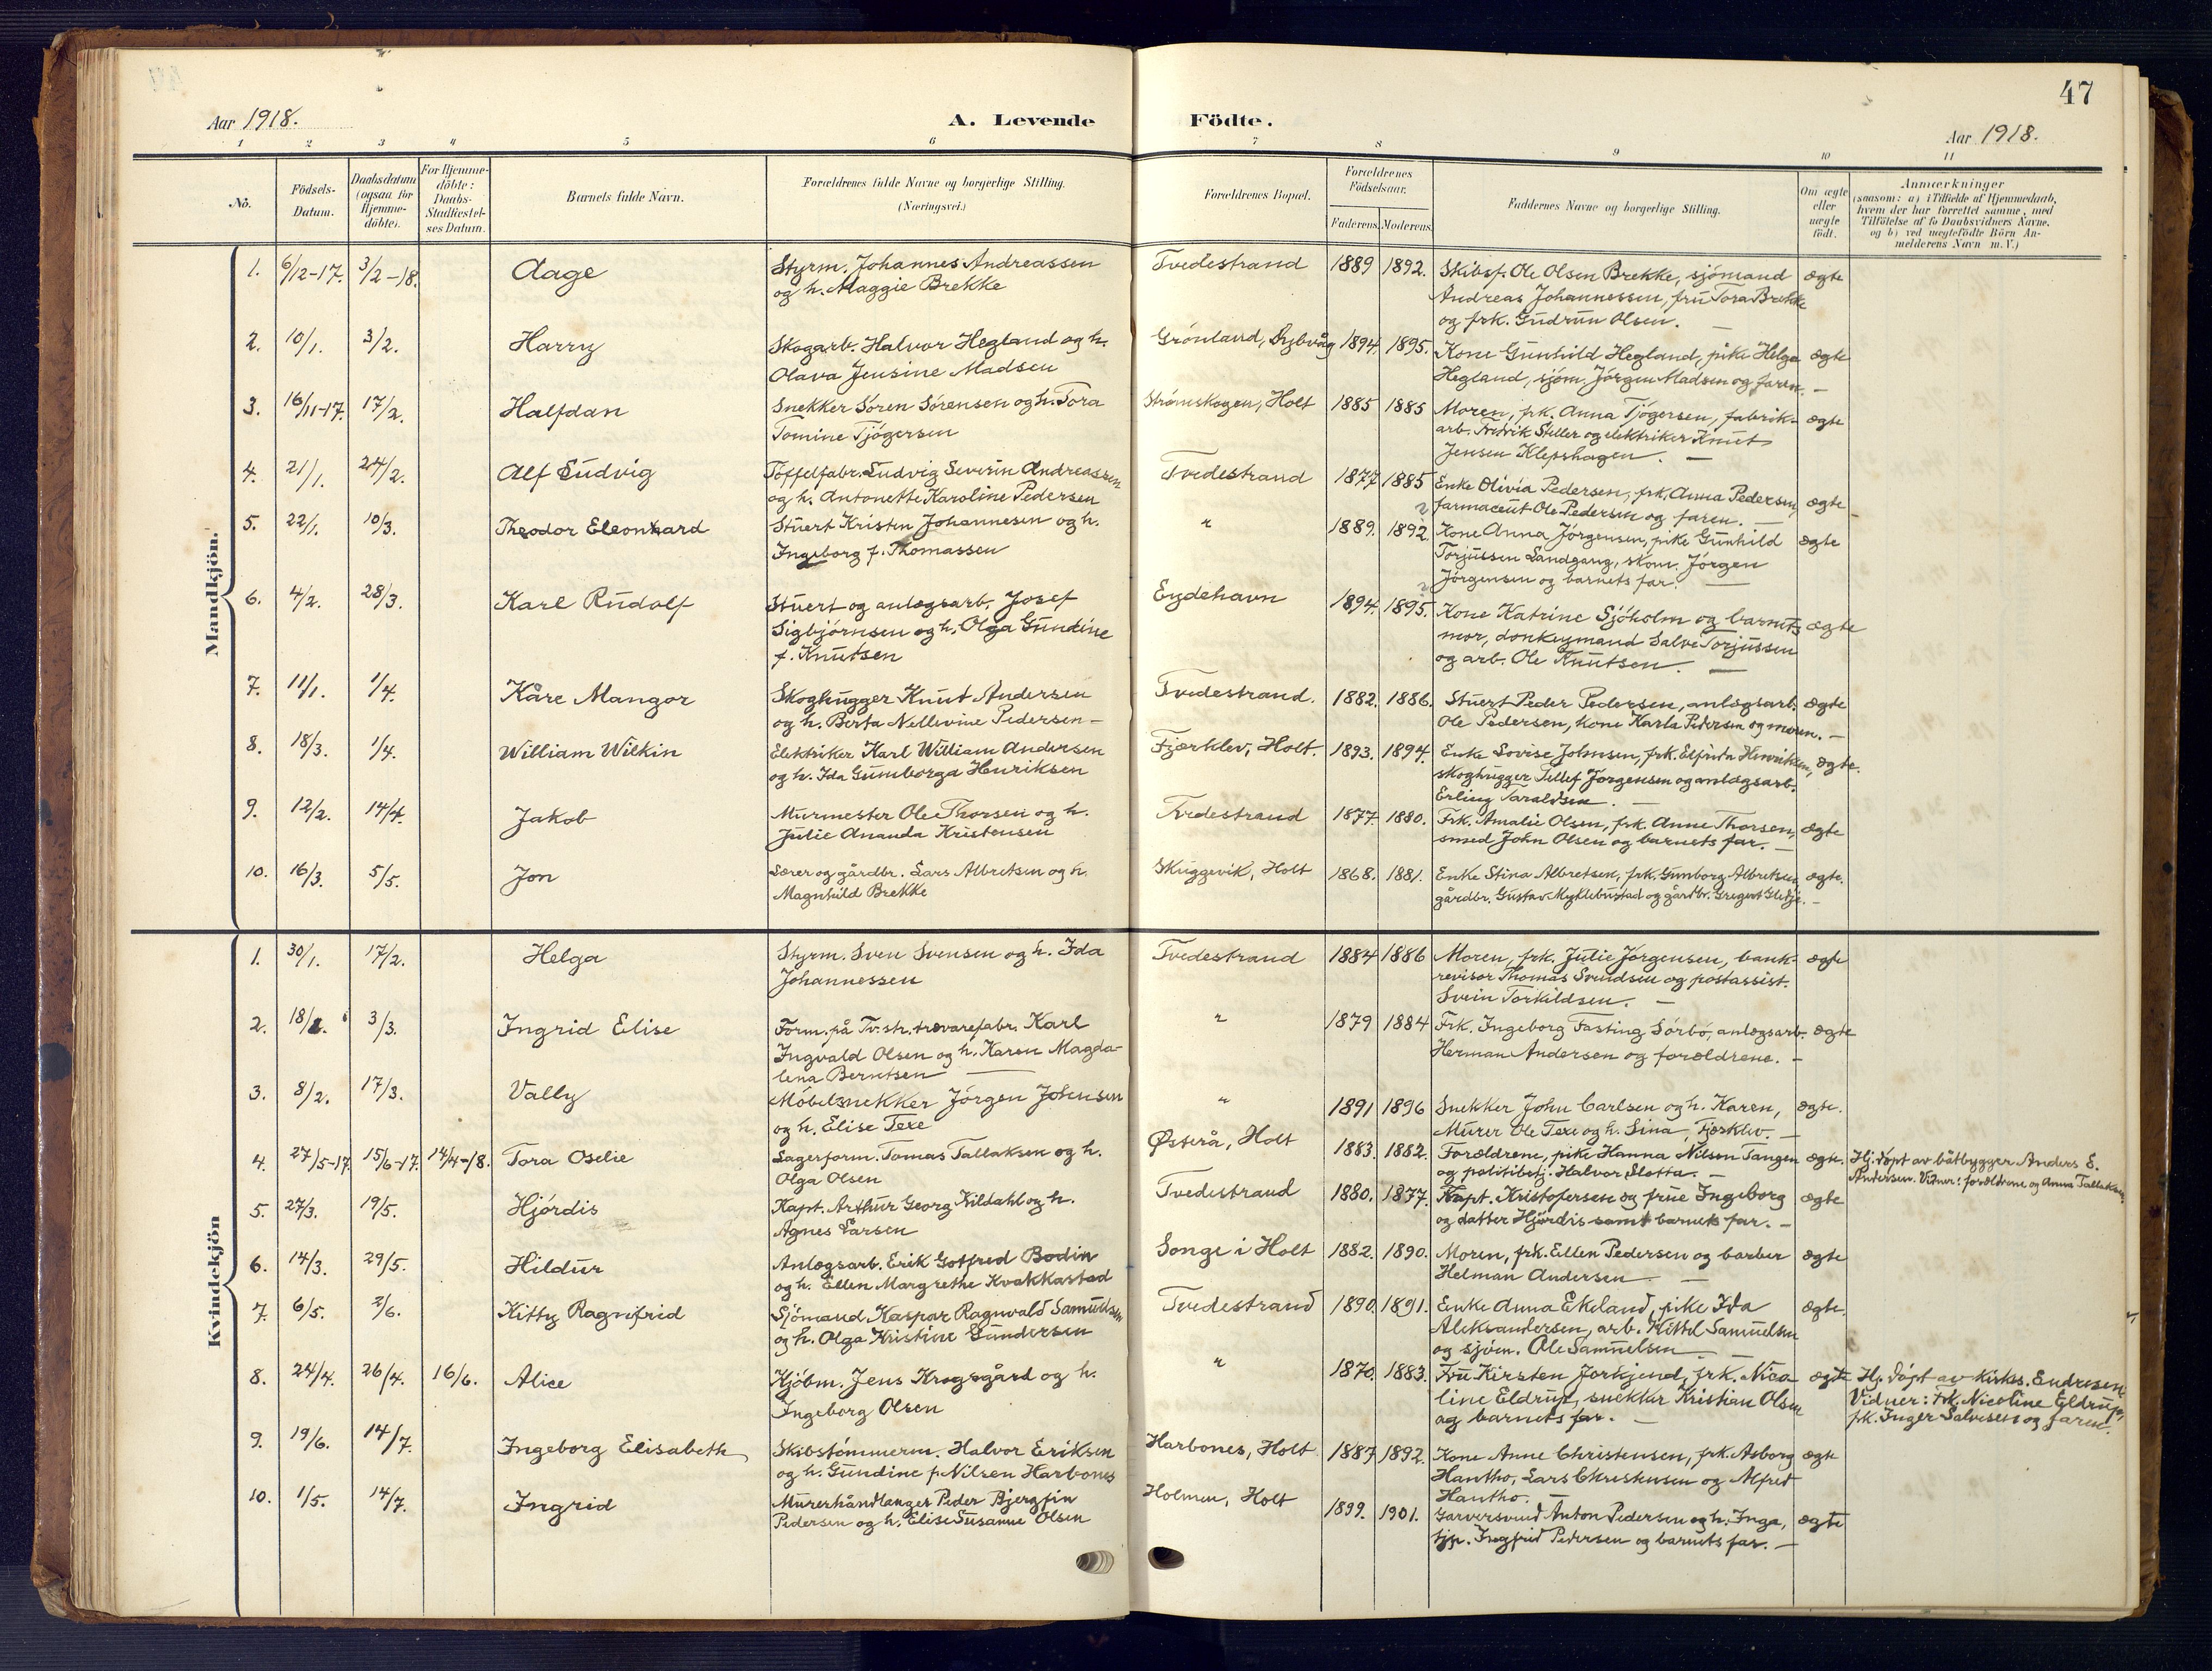 47
Aar 1918.
A. Levende Födte.
Aar 1918.
1 2 3 4 5 6 7 8 9 10 11
No.
Födsels-
Datum.
Daabsdatum
(ogsaa for
Hjemme-
döbte).
For Hjemme-
döbte:
Daabs-
Stadfæstel-
ses Datum.
Barnets fulde Navn.
Forældrenes fulde Navne og borgerlige Stilling.
(Næringsvei.)
Forældrenes Bopæl.
Forældrenes
Födselsaar.
Faderens. Moderens.
Faddernes Navne og borgerlige Stilling.
Om ægte
eller
uægte
födt.
Anmærkninger
(saasom: a) i Tilfælde af Hjemmedaab,
hvem der har forrettet samme, med
Tilföielse af to Daabsvidners Navne,
og b) ved uægtefödte Börn An-
melderens Navn m.V.)
Mandkjön.
1. 6/12-17. 3/2-18. Aage
Styrm. Johannes Andreassen
og h. Maggie Brekke
Tvedestrand 1889 1892.
Skibsf. Ole Olsen Brekke, sjömand
Andreas Johannessen, fru Tora Brekke
og frk. Gudrun Olsen. —
ægte
2. 10/1. 3/2. Harry
Skogarb. Halvor Hegland og h.
Olava Jensine Madsen
Grönland, Dybvåg 1894. 1895.
Kone Gunhild Hegland, pike Helga
Hegland, sjöm. Jörgen Madsen og faren. —
ægte
3. 16/11-17. 17/2. Halfdan
Snekker Sören Sörensen og h. Tora
Tomine Tjögersen
Strömskogen, Holt 1885 1885
Moren, frk. Anna Tjögersen, fabrik-
arb. Fredrik Stiller og elektriker Knut
Jensen Klepshagen. —
ægte
4. 21/1. 24/2. Alf Ludvig
Töffelfabr. Ludvig Severin Andreassen
og h. Antonette Karoline Pedersen
Tvedestrand 1877 1885
Enke Olivia Pedersen, frk. Anna Pedersen,
farmaceut Ole Pedersen og faren. —
ægte
5. 22/1. 10/3. Theodor Eleonhard
Stuert Kristen Johannesen og h.
Ingeborg f. Thomassen
" 1889. 1892
Kone Anna Jörgensen, pike Gunhild
Torjussen Landgang, skom. Jörgen
Jörgensen og barnets far. —
ægte
6. 4/2. 28/3. Karl Rudolf
Stuert og anlægsarb. Josef
Sigbjörnsen og h. Olga Gundine
f. Knutsen
Eydehavn 1894. 1895.
Kone Katrine Sjöholm og barnets
mor, donkeymand Salve Torjussen
og arb. Ole Knutsen. —
ægte
7. 11/1. 1/4. Kåre Mangor
Skoghugger Knut Andersen
og h. Berta Nellevine Pedersen —
Tvedestrand. 1882. 1886.
Stuert Peder Pedersen, anlægsarb.
Ole Pedersen, kone Karla Pedersen og moren. —
ægte
8. 18/3. 1/4. William Wilkin
Elektriker Karl William Andersen
og h. Ida Gumborga Henriksen
Fjærklev, Holt. 1893. 1894.
Enke Lovise Johnsen, frk. Elfrida Henriksen,
skoghugger Tellef Jörgensen og anlægsarb.
Erling Taraldsen. —
ægte.
9. 12/2. 14/4. Jakob
Murmester Ole Thorsen og h.
Julie Ananda Kristensen
Tvedestrand 1877. 1880.
Frk. Amalie Olsen, frk. Anne Thorsen,
smed John Olsen og barnets far. —
ægte
10. 16/3. 5/5. Jon
Lærer og gårdbr. Lars Albretsen og h.
Magnhild Brekke
Skuggevik, Holt 1868. 1881.
Enke Stina Albretsen, frk. Gunborg Albretsen,
gårdbr. Gustav Myklebustad og gårdbr. Gregert —
ægte.
Kvindekjön
1. 30/1. 17/2. Helga
Styrm. Sven Svensen og h. Ida
Johannessen
Tvedestrand 1884 1886
Moren, frk. Julie Jörgensen, bank-
revisor Thomas Svendsen og postassist.
Svein Torkildsen. —
ægte
2. 18/1. 3/3. Ingrid Elise
Form. på Tv.str. trævarefabr. Karl
Ingvald Olsen og h. Karen Magda-
lena Berntsen —
" 1879 1884
Frk. Ingeborg Fasting Sörbö, anlægsarb.
Herman Andersen og forældrene. —
ægte
3. 8/2. 17/3. Vally
Möbelsnekker Jörgen Johnsen
og h. Elise Texe
" 1891 1896
Snekker John Carlsen og h. Karen,
Murer Ole Texe og h. Lina, Fjærklev. —
ægte.
4. 27/5-17 15/6-17. 14/4-18. Tora Oselie
Lagerform. Tomas Tallaksen og h.
Olga Olsen
Østerå, Holt 1883. 1882.
Forældrene, pike Hanna Nilsen Tangen
og politibetj. Halvor Slotta. —
ægte.
Hj. döpt av båtbygger Anders E.
Andersen. Vidner: forældrene og Anna Tallaksen.
5. 27/3. 19/5. Hjördis
Kapt. Arthur Georg Kildahl og h.
Agnes Larsen
Tvedestrand 1880. 1877.
Kapt. Kristofersen og frue Ingeborg
og datter Hjördis samt barnets far. —
ægte
6. 14/3. 29/5. Hildur
Anlægsarb. Erik Gotfred Bodin
og h. Ellen Margrethe Kvakkastad
Songe i Holt 1882. 1890.
Moren, frk. Ellen Pedersen og barber
Helman Andersen —
ægte
7. 6/5. 2/6. Kitty Ragnfrid
Sjömand Kaspar Ragnvald Samuelsen
og h. Olga Kristine Gundersen
Tvedestrand 1890. 1891.
Enke Anna Ekeland, pike Ida
Aleksandersen, arb. Kittel Samuelsen
og sjöm. Ole Samuelsen —
ægte.
8. 24/4. 26/4. 16/6. Alice
Kjöbm. Jens Krogsgård og h.
Ingeborg Olsen
" 1870. 1883.
Fru Kirsten Jorkjend, frk. Nico
line Eldrup, snekker Kristian Olsen
og barnets far. —
ægte
Hj. döpt av kirkes. Endresen.
Vidner: Frk. Nicoline Eldrup,
frk. Inger Salvesen og faren.
9. 19/6. 14/7. Ingeborg Elisabeth
Skibstömmerm. Halvor Eriksen
og h. Gundine f. Nilsen Harbones
Harbones, Holt 1887 1892.
Kone Anne Christensen, frk. Asborg
Hantho, Lars Christensen og Alfred
Hantho. —
ægte
10. 1/5. 14/7. Ingrid
Murerhåndlanger Peder Bjergfin
Pedersen og h. Elise Susanne Olsen
Holmen, Holt 1899. 1901.
Garversvend Anton Pedersen og h. Inga,
tjp. Ingfrid Pedersen og barnets far. —
ægte